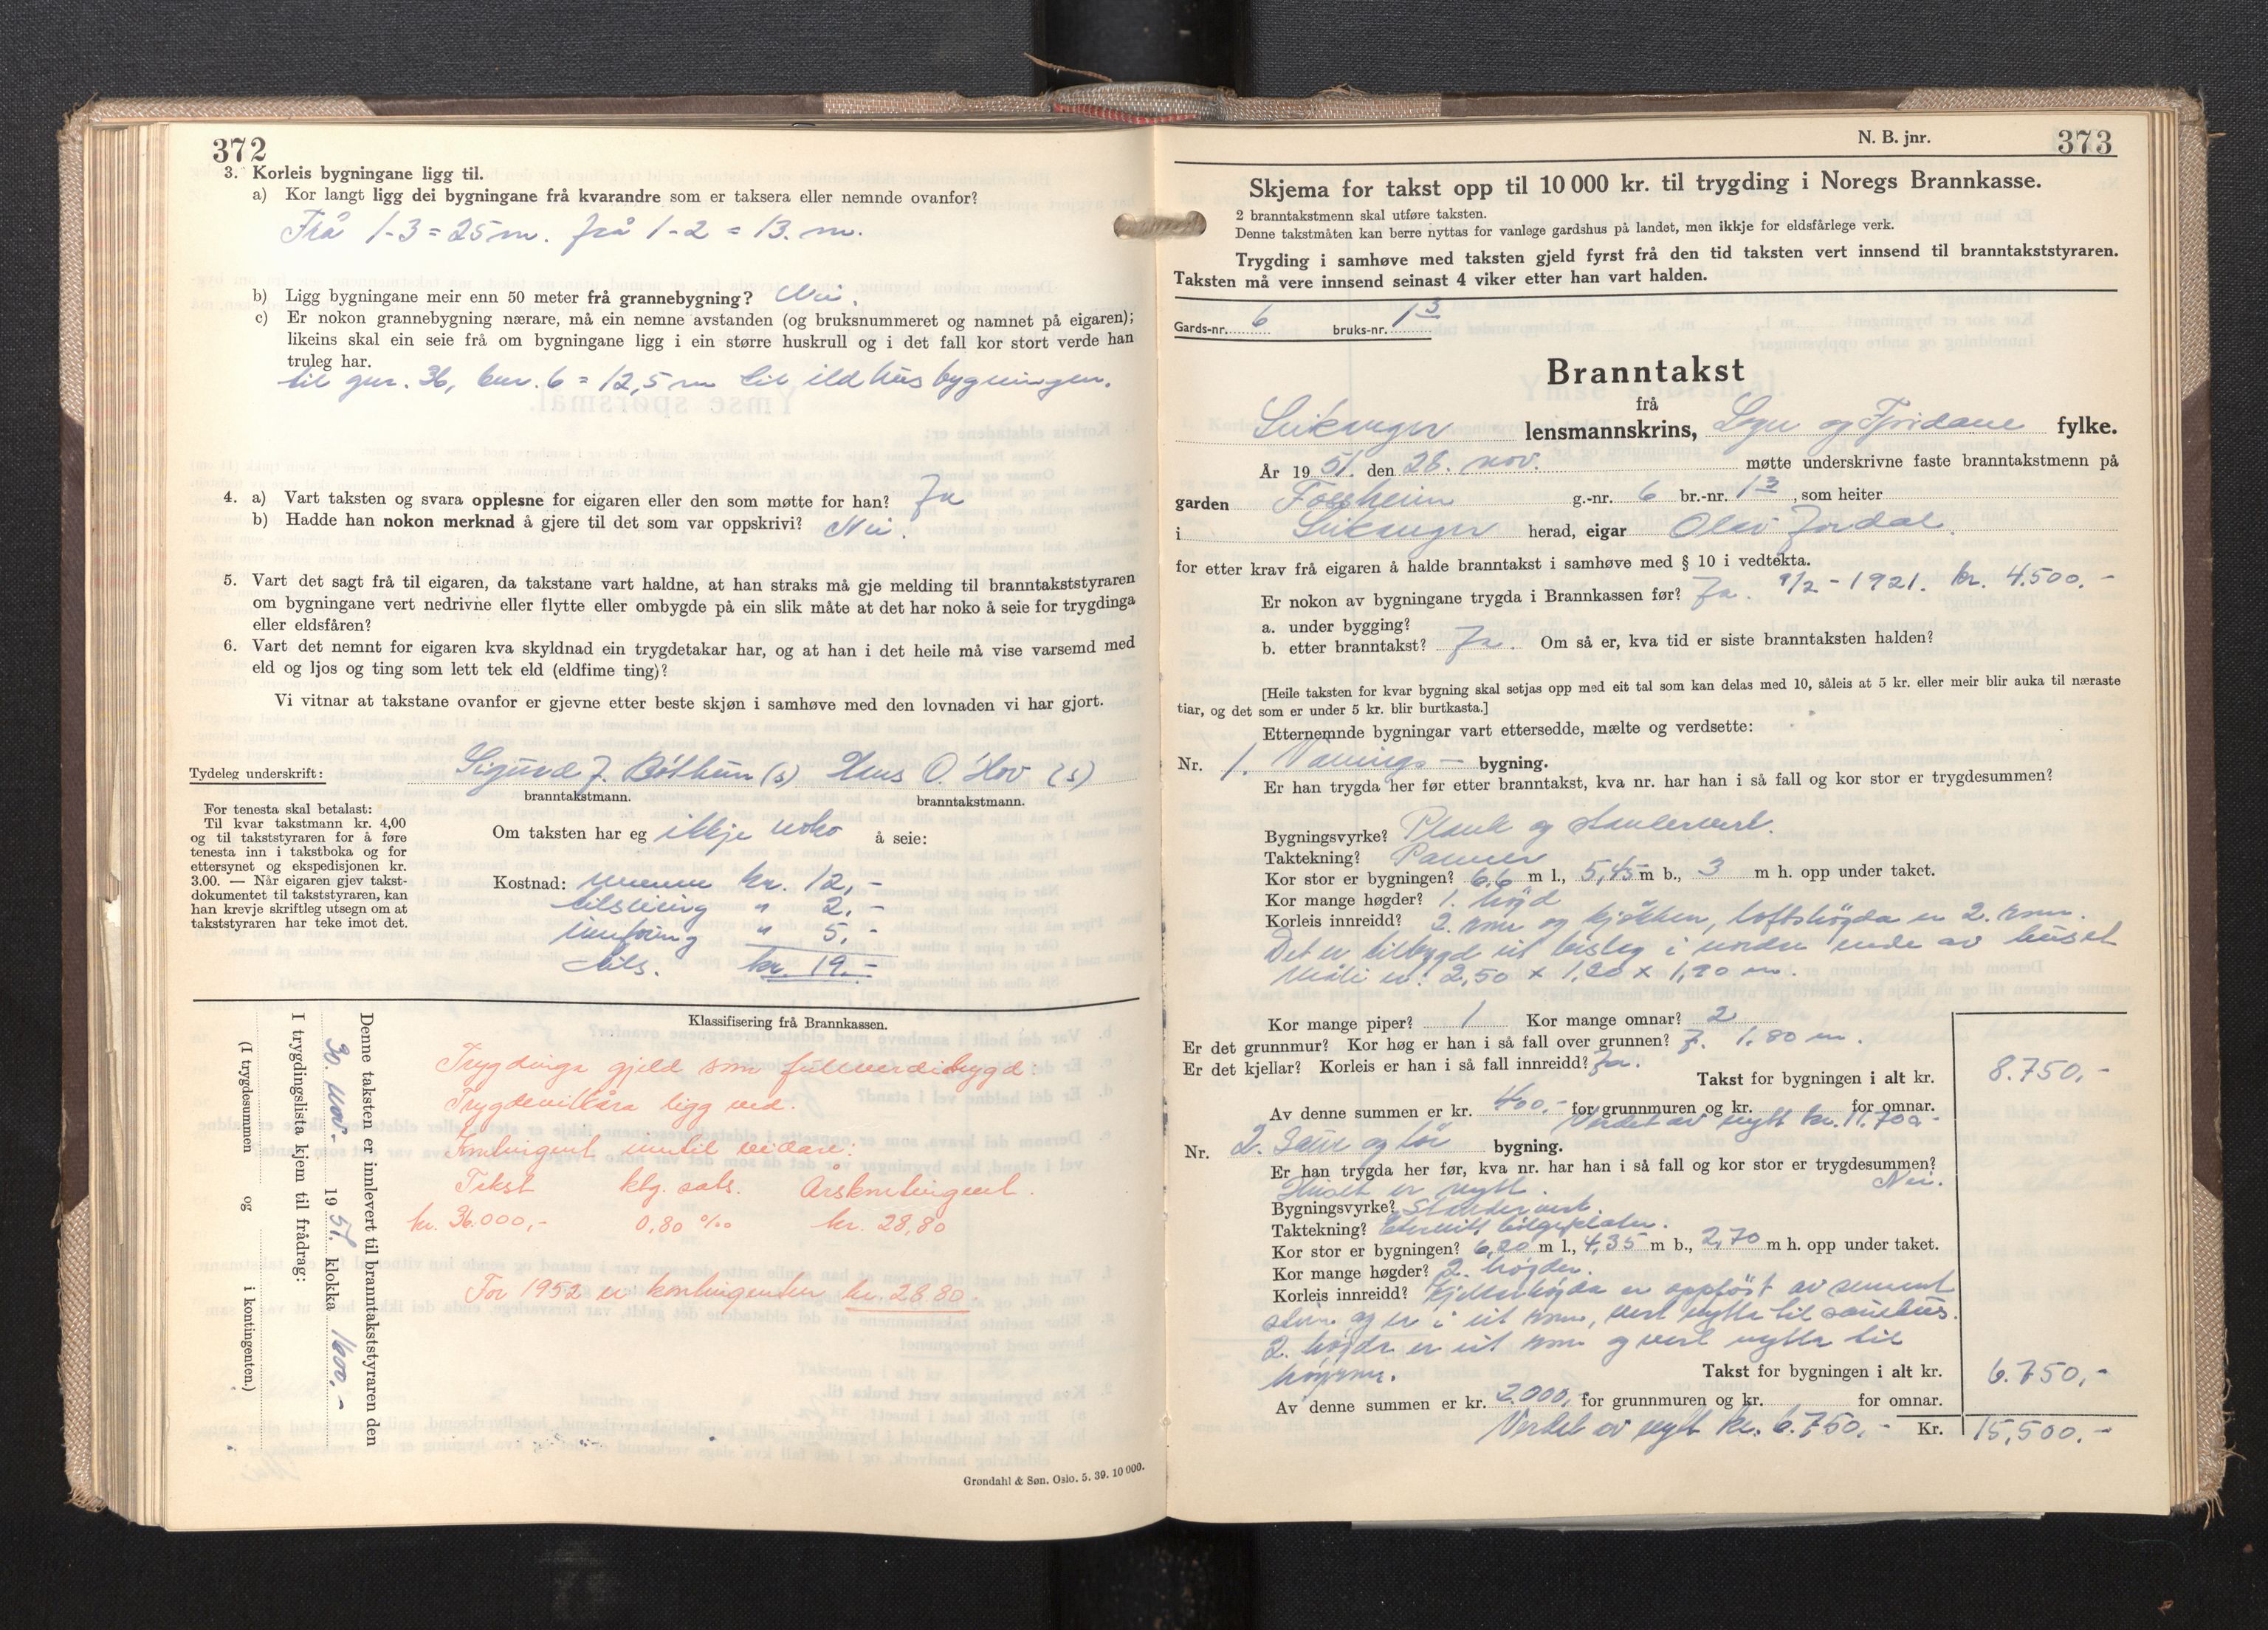 372
3. Korleis bygningane ligg til.
a) Kor langt ligg dei bygningane frå kvarandre som er taksera eller nemnde ovanfor?
Frå 1-3 = 25 m. frå 1-2 = 13. m.
b) Ligg bygningane meir enn 50 meter frå grannebygning? Nei.
c) Er nokon grannebygning nærare, må ein nemne avstanden (og bruksnummeret og namnet på eigaren);
likeins skal ein seie frå om bygningane ligg i ein større huskrull og i det fall kor stort verde han
truleg har.
til gnr. 36, bnr. 6 = 12,5 m til ildhusbygningen.
4. a) Vart taksten og svara opplesne for eigaren eller den som møtte for han? Ja
b) Hadde han nokon merknad å gjere til det som var oppskrivi? Nei.
5. Vart det sagt frå til eigaren, da takstane vart haldne, at han straks må gje melding til branntakststyraren
om bygningane vert nedrivne eller flytte eller ombygde på ein slik måte at det har noko å seie for trygdinga
eller eldsfåren?
6. Vart det nemnt for eigaren kva skyldnad ein trygdetakar har, og at han i det heile må vise varsemd med
eld og ljos og ting som lett tek eld (eldfime ting)?
Vi vitnar at takstane ovanfor er gjevne etter beste skjøn i samhøve med den lovnaden vi har gjort.
Tydeleg underskrift: Sigurd J. Bøthun (s) Hans O. Hov (s)
branntakstmann. branntakstmann.
For tenesta skal betalast:
Til kvar takstmann kr. 4,00
og til takststyraren for å føre
tenesta inn i takstboka og for
ettersynet og ekspedisjonen kr.
3.00. — Når eigaren gjev takst-
dokumentet til takststyraren, kan
han krevje skriftleg utsegn om at
takststyraren har teke imot det.
Om taksten har eg ikkje noko å seie:
Kostnad: menn kr. 12,-
tilsteling " 2,-
innføring " 5,-
tils. kr. 19.-
Klassifisering frå Brannkassen.
Trygdinga gjeld som fullverditrygd:
Trygdevilkåra ligg ved.
Kontingent inntil vidare:
Takst ktg. sats. Årskontingent.
kr. 36.000,- 0,80 ‰ kr. 28,80
For 1952 er kontingenten kr. 28.80.
Denne taksten er innlevert til branntakststyraren den
30. nov. 1951. klokka 1600,-
I trygdingslista kjem til frådrag:
(I trygdesummen og i kontingenten.)
Grøndahl & Søn. Oslo. 5. 39. 10 000.
N. B. jnr. 373
Skjema for takst opp til 10 000 kr. til trygding i Noregs Brannkasse.
2 branntakstmenn skal utføre taksten.
Denne takstmåten kan berre nyttas for vanlege gardshus på landet, men ikkje for eldsfårlege verk.
Trygding i samhøve med taksten gjeld fyrst frå den tid taksten vert innsend til branntakststyraren.
Taksten må vere innsend seinast 4 viker etter han vart halden.
Gards-nr. 6 bruks-nr. 13
Branntakst
frå
Leikanger lensmannskrins, Sogn og Fjordane fylke.
År 1951. den 28. nov. møtte underskrivne faste branntakstmenn på
garden Fossheim g.-nr. 6 br.-nr. 13, som heiter
i Leikanger herad, eigar Olav Jordal.
for etter krav frå eigaren å halde branntakst i samhøve med § 10 i vedtekta.
Er nokon av bygningane trygda i Brannkassen før? Ja. 9/2 - 1921. kr. 4.500.-
a. under bygging?
b. etter branntakst? Ja. Om så er, kva tid er siste branntaksten halden?
[Heile taksten for kvar bygning skal setjas opp med eit tal som kan delas med 10, såleis at 5 kr. eller meir blir auka til næraste
tiar, og det som er under 5 kr. blir burtkasta.]
Etternemnde bygningar vart ettersedde, mælte og verdsette:
Nr. 1. Vånings- bygning.
Er han trygda her før etter branntakst, kva nr. har han i så fall og kor stor er trygdesummen?
Bygningsvyrke? Plank og standerverk.
Taktekning? Panner
Kor stor er bygningen? 6,6 m l., 5,45 m b., 3 m h. opp under taket.
Kor mange høgder? 1. høgd
Korleis innreidd? 2. rom og kjøkken, loftshøgda er 2. rom.
Det er tilbygd eit bislag i nordre ende av huset
Mål er: 2,50 x 1,20 x 1,90 m.
Kor mange piper? 1 Kor mange omnar? 2
Er det grunnmur? Kor høg er han i så fall over grunnen? J. 1.80 m.
Er det kjellar? Korleis er han i så fall innreidd? Ja.
Takst for bygningen i alt kr. 8.750,-
Av denne summen er kr. 400,- for grunnmuren og kr. for omnar.
Verdet av nytt kr. 11.700-
Nr. 2. Saue og løe bygning.
Er han trygda her før, kva nr. har han i så fall og kor stor er trygdesummen?
Huset er nytt. Nei.
Bygningsvyrke? Standerverk.
Taktekning? Eternitt bølgeplater.
Kor stor er bygningen? 6,20 m l., 4,35 m b., 2,70 m h. opp under taket.
Kor mange høgder? 2. høgder.
Korleis innreidd? Kjellerhøgda er oppført av sement
stein og er i eit rom, vert nytta til sauehus.
2. høgda er eit rom og vert nytta til
høyrom.
Takst for bygningen i alt kr. 6.750,-
Av denne summen er kr. 2.000,- for grunnmuren og kr. for omnar.
Verdet av nytt kr. 6.750,- Kr. 15.500.-